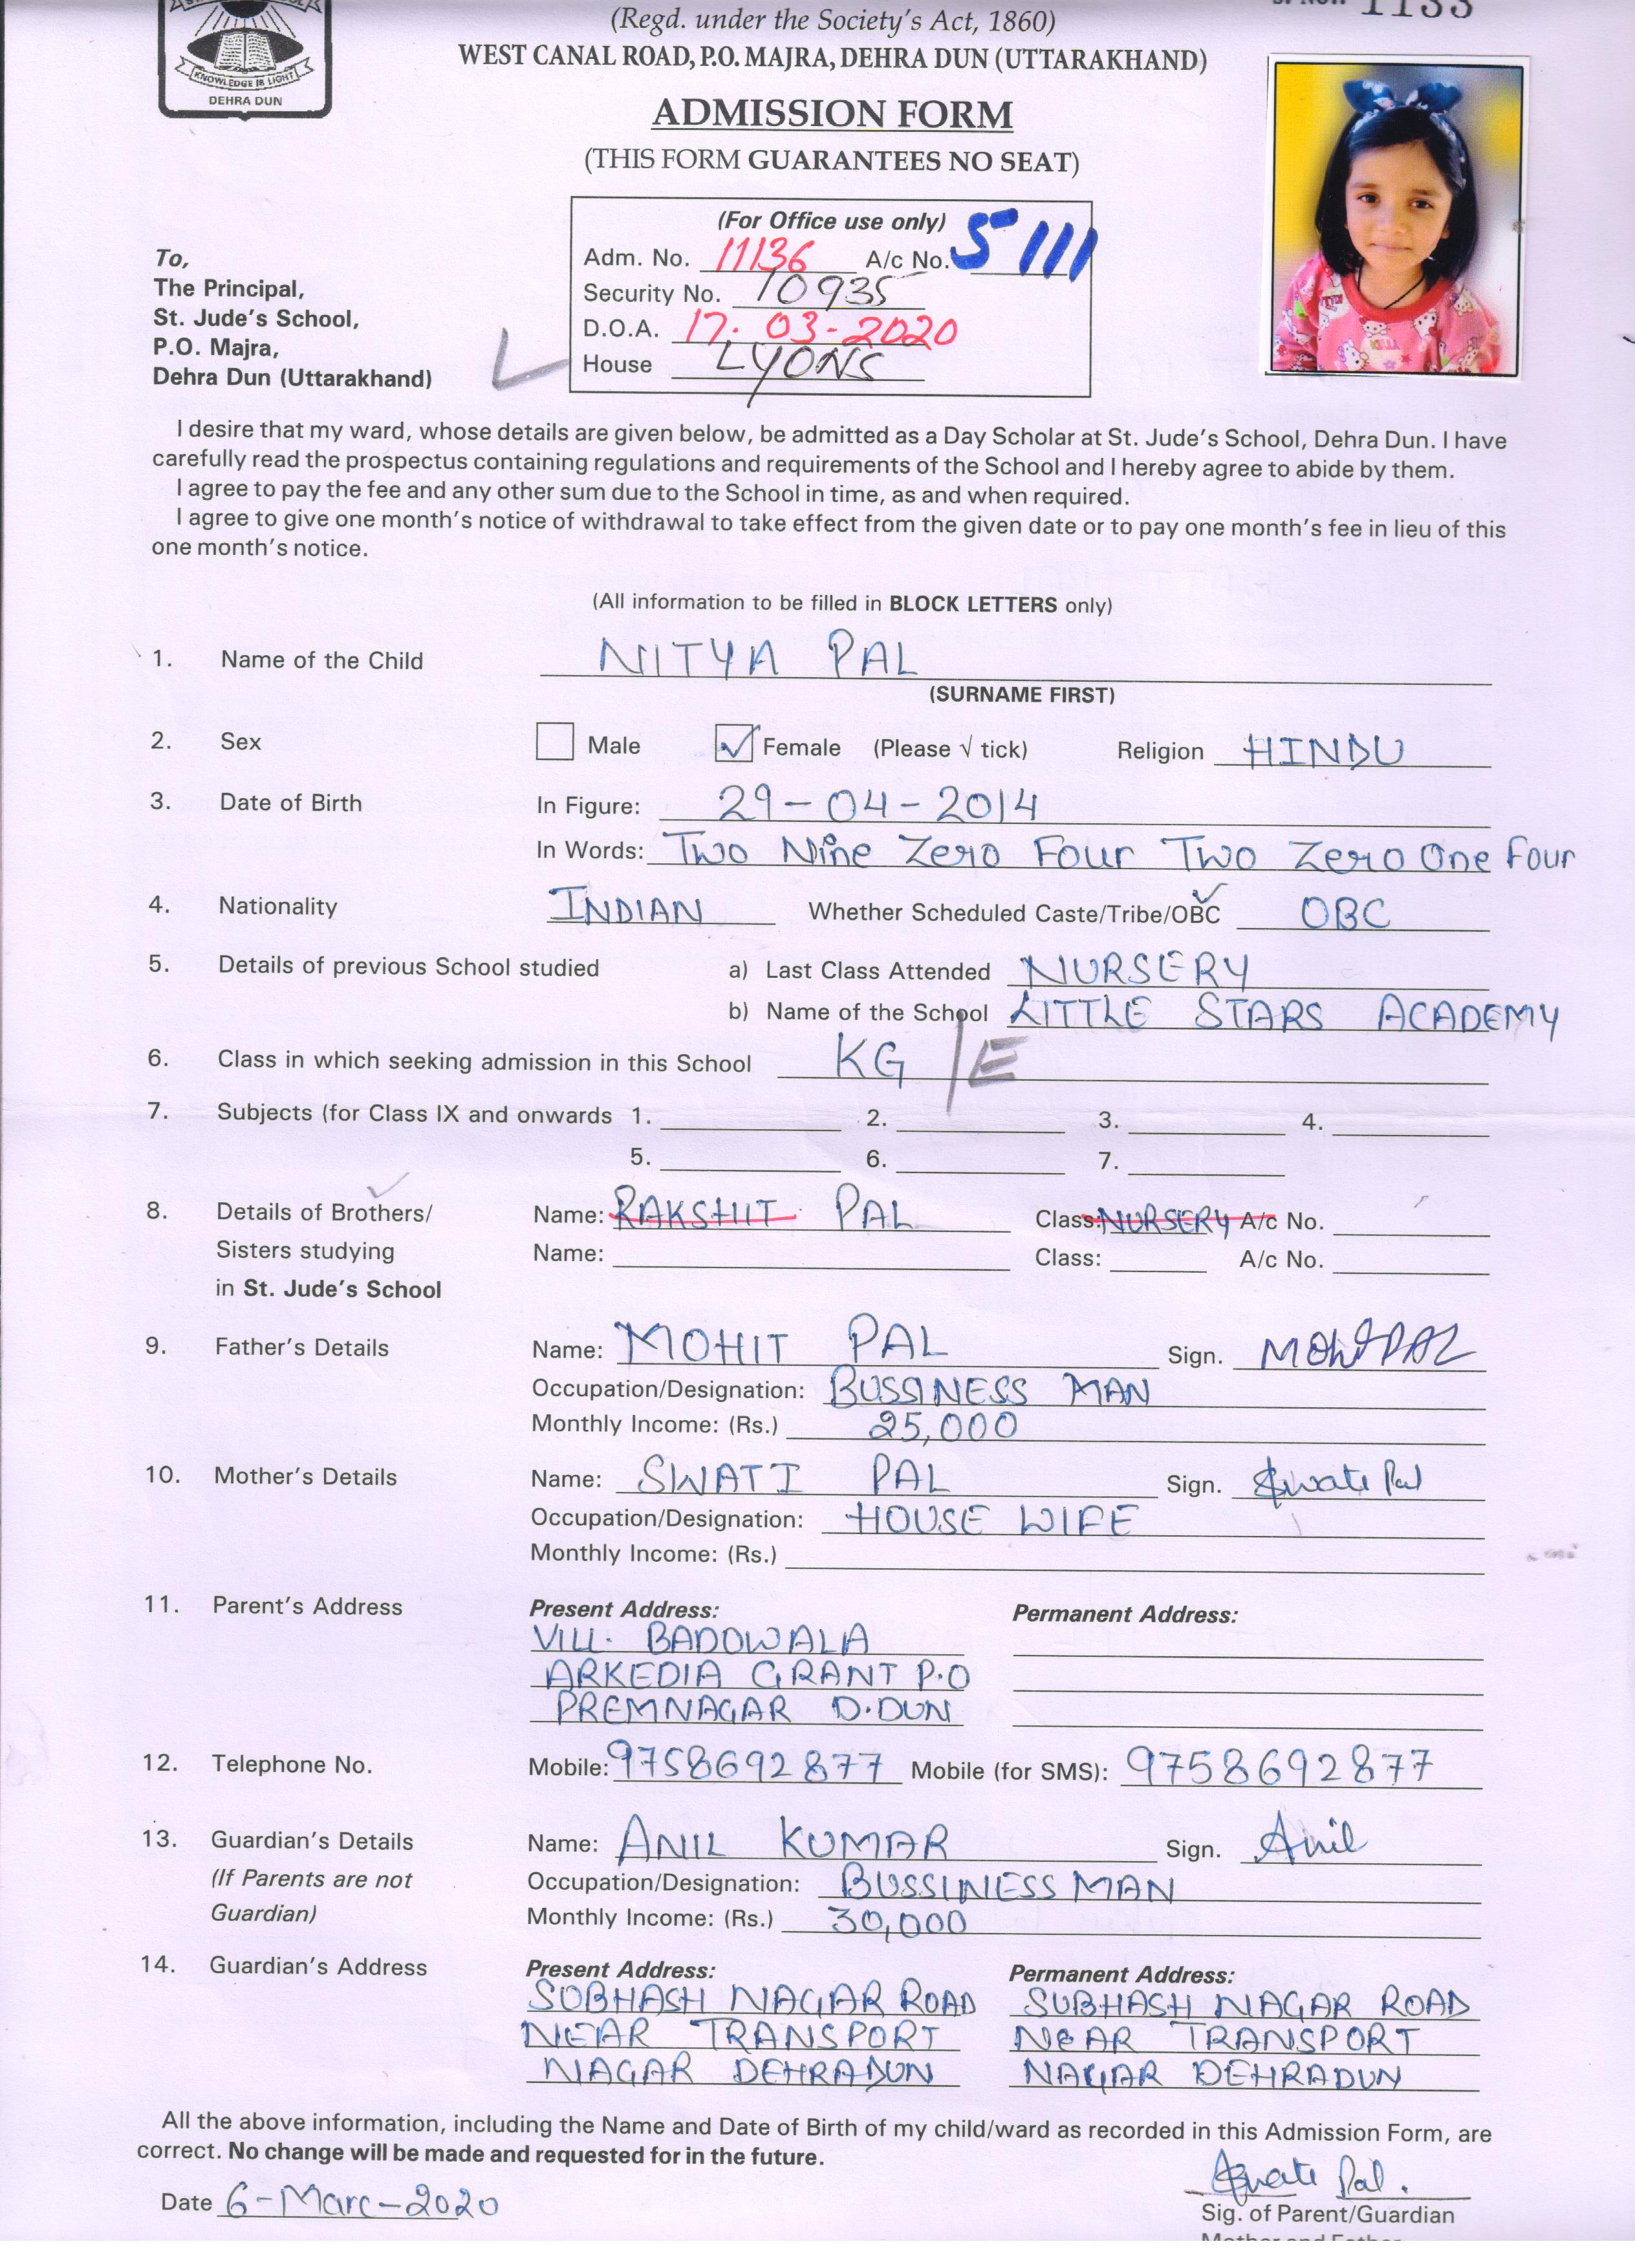 KNOWLEDGE IS LIGHT
DEHRA DUN
(Regd. under the Society's Act, 1860)
WEST CANAL ROAD, P.O. MAJRA, DEHRA DUN (UTTARAKHAND)
ADMISSION FORM
(THIS FORM GUARANTEES NO SEAT)
(For Office use only)
Adm. No. 11136 A/c No. 5111
Security No. 10935
D.O.A. 17-03-2020
House LYONS
To,
The Principal,
St. Jude's School,
P.O. Majra,
Dehra Dun (Uttarakhand)
I desire that my ward, whose details are given below, be admitted as a Day Scholar at St. Jude's School, Dehra Dun. I have
carefully read the prospectus containing regulations and requirements of the School and I hereby agree to abide by them.
I agree to pay the fee and any other sum due to the School in time, as and when required.
I agree to give one month's notice of withdrawal to take effect from the given date or to pay one month's fee in lieu of this
one month's notice.
(All information to be filled in BLOCK LETTERS only)
1. Name of the Child NITYA PAL
(SURNAME FIRST)
2. Sex Male ✓ Female (Please √ tick) Religion HINDU
3. Date of Birth In Figure: 29-04-2014
In Words: Two Nine Zero Four Two Zero One Four
4. Nationality INDIAN Whether Scheduled Caste/Tribe/OBC OBC
5. Details of previous School studied a) Last Class Attended NURSERY
b) Name of the School LITTLE STARS ACADEMY
6. Class in which seeking admission in this School KG /E
7. Subjects (for Class IX and onwards 1. 2. 3. 4.
5. 6. 7.
8. Details of Brothers/ Name: RAKSHIT PAL Class: NURSERY A/c No.
Sisters studying Name: Class: A/c No.
in St. Jude's School
9. Father's Details Name: MOHIT PAL Sign. MOHIT PAL
Occupation/Designation: BUSSINESS MAN
Monthly Income: (Rs.) 25,000
10. Mother's Details Name: SWATI PAL Sign. Swati Pal
Occupation/Designation: HOUSE WIFE
Monthly Income: (Rs.)
11. Parent's Address Present Address: Permanent Address:
VILL. BADOWALA
ARKEDIA GRANT P.O
PREMNAGAR D.DUN
12. Telephone No. Mobile: 9758692877 Mobile (for SMS): 9758692877
13. Guardian's Details Name: ANIL KUMAR Sign. Anil
(If Parents are not Occupation/Designation: BUSSINESS MAN
Guardian) Monthly Income: (Rs.) 30,000
14. Guardian's Address Present Address: Permanent Address:
SUBHASH NAGAR ROAD SUBHASH NAGAR ROAD
NEAR TRANSPORT NEAR TRANSPORT
NAGAR DEHRADUN NAGAR DEHRADUN
All the above information, including the Name and Date of Birth of my child/ward as recorded in this Admission Form, are
correct. No change will be made and requested for in the future.
Date 6-Marc-2020 Swati Pal.
Sig. of Parent/Guardian